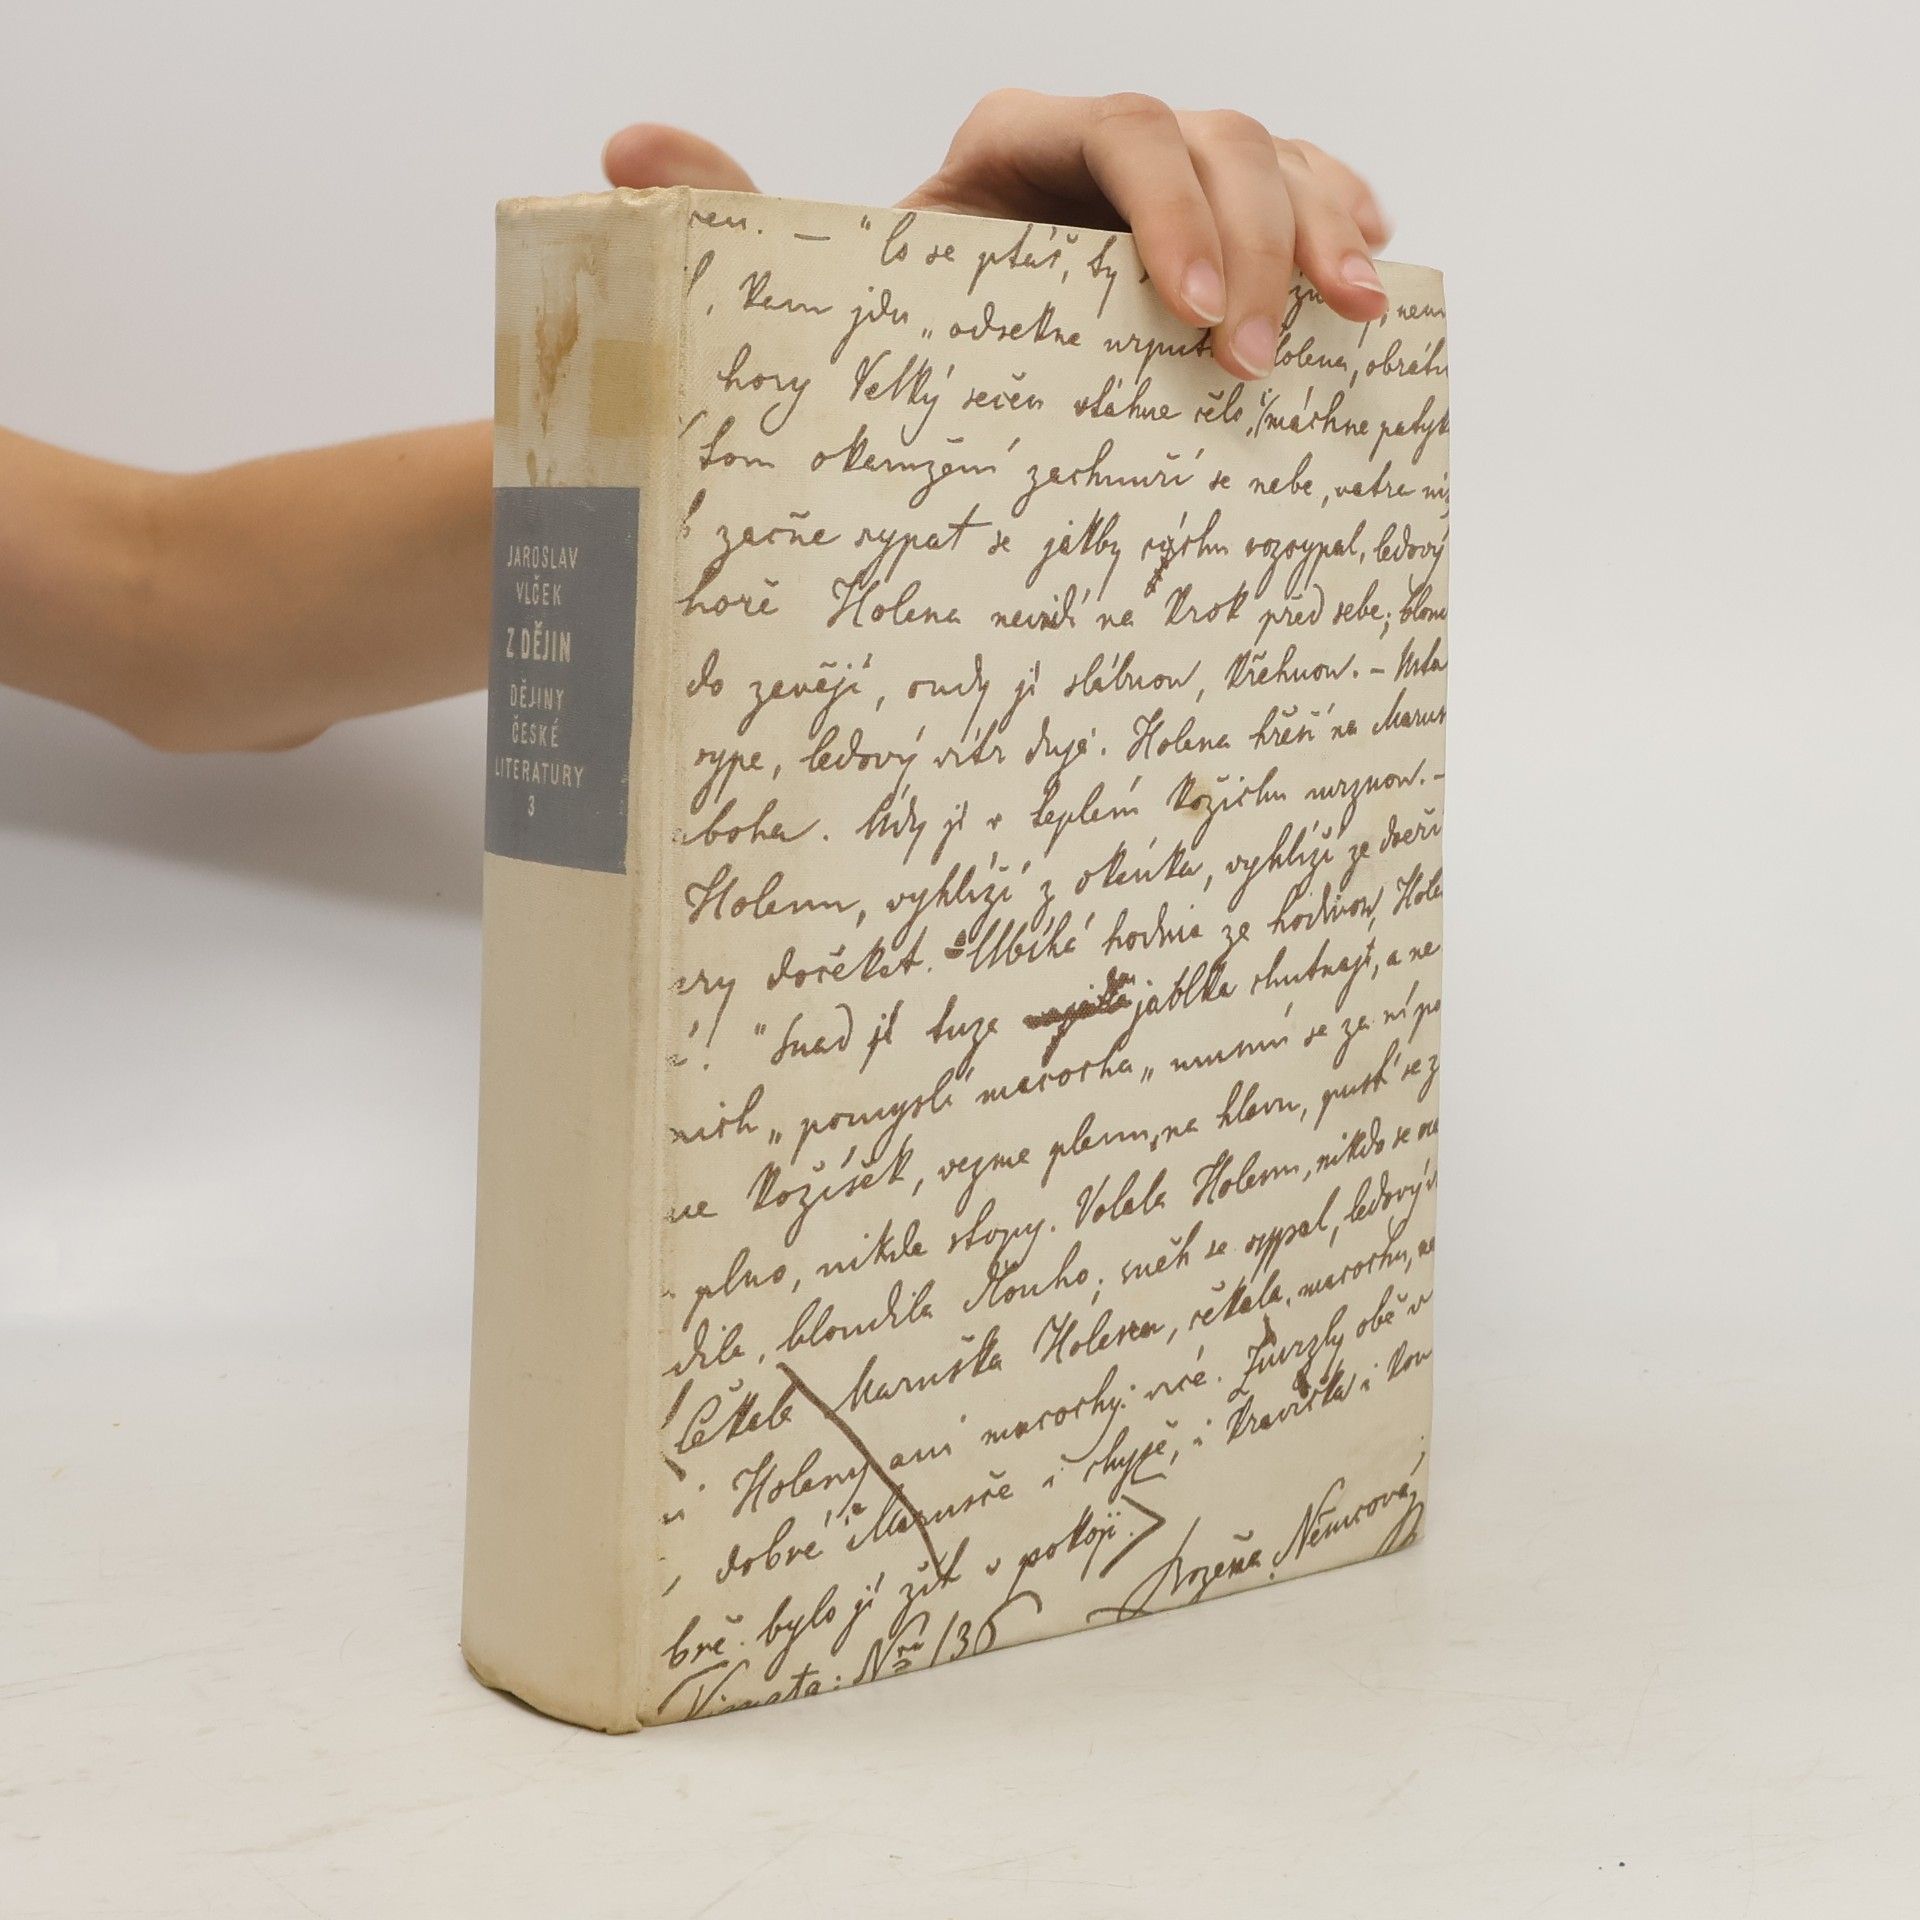 JAROSLAV
VLČEK
Z DĚJIN
DĚJINY
ČESKÉ
LITERATURY
3
— "Co se ptáš, ty
, kam jdu „ odsekne Holena, obrátí
hory Velký sečen stáhne čelo, máchne
tom okamžení zachmuří se nebe, vatra
začne sypat se jakby rozsypal, ledový
hoře Holena nevidí na krok před sebe;
do závějí, oudy jí slábnou, křehnou. —
sype, ledový vítr duje. Holena hřeší na
boha. Oudy jí v teplém kožichu mrznou. —
Holenu, vyhlíží z okénka, vyhlíží ze dveří
dočekat. Ubíhá hodina za hodinou,
"Snad jí tuze jablka chutnají, a ne
nich „ pomyslí macocha „ musím se za ní
kožíšek, vezme plenu na hlavu, pustí se z
plno, nikde stopy. Volala Holenu, nikdo se
dila, bloudila dlouho; sníh se sypal, ledový
Čekala Maruška Holenu, čekala, macochu,
Holeny ani macochy více. Zmrzly obě v
dobré Marušce i chyše, i kravička i
bře bylo jí žít v pokoji.
Božena Němcová
Nro 136